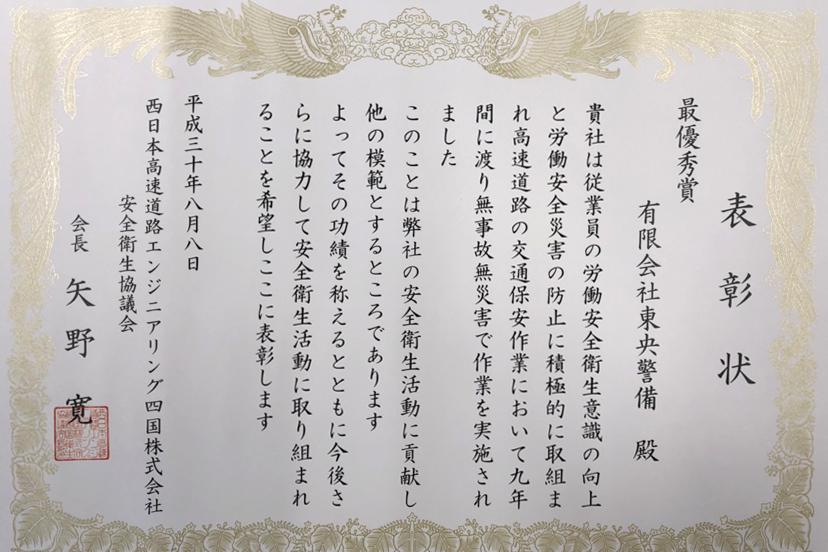 表彰状
最優秀賞
有限会社東央警備 殿
貴社は従業員の労働安全衛生意識の向上
と労働安全災害の防止に積極的に取組ま
れ高速道路の交通保安作業において九年
間に渡り無事故無災害で作業を実施され
ました
このことは弊社の安全衛生活動に貢献し
他の模範とするところであります
よってその功績を称えるとともに今後さ
らに協力して安全衛生活動に取り組まれ
ることを希望しここに表彰します
平成三十年八月八日
西日本高速道路エンジニアリング四国株式会社
安全衛生協議会
会長 矢野 寛